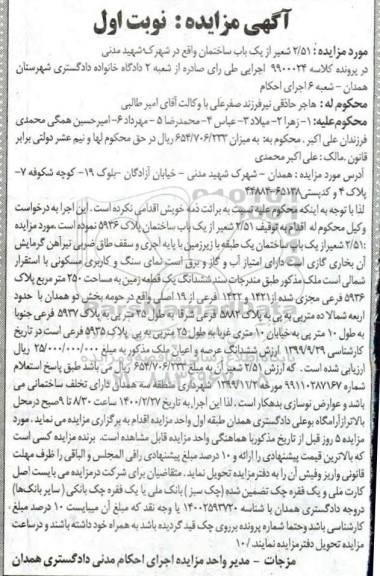 آگهی مزایده : نوبت اول
مورد مزایده : ۲/۵۱ شعیر از یک باب ساختمان واقع در شهرک شهید مدنی
در پرونده کلاسه ۹۹۰۰۰۲۴ اجرایی طی رای صادره از شعبه ۲ دادگاه خانواده دادگستری شهرستان
همدان - شعبه ۶ اجرای احکام
محکوم له : هاجر حاذقی نیر فرزند صفرعلی با وکالت آقای امیر طالبی
محکوم علیه: ۱- زهرا ۲- میلاد ۳- عباس ۴- محمدرضا ۵- مهرداد ۶- امیرحسین همگی محمدی
فرزندان علی اکبر . محکوم به: به میزان ۶۵۴/۷۰۶/۲۳۳ ریال در حق محکوم لها و نیم عشر دولتی برابر
قانون .مالک : علی اکبر محمدی
آدرس مورد مزایده : همدان - شهرک شهید مدنی - خیابان آزادگان -بلوک ۱۹- کوچه شکوفه ۷-
پلاک ۴ و کدپستی ۶۵۱۳۸-۴۴۸۸۴
لذا با توجه به اینکه محکوم علیه نسبت به برائت ذمه خویش اقدامی نکرده است . این اجرا به درخواست
وکیل محکوم له اقدام به توقیف ۲/۵۱ شعیر از یک باب ساختمان پلاک ۵۹۳۶ نموده است .مورد مزایده
:۲/۵۱ شعیر از یک باب ساختمان یک طبقه با زیرزمین با پایه آجری و سقف طاق ضربی تیرآهن گرمایش
آن بخاری گازی است دارای امتیاز آب و گاز و برق است نمای سنگ و کاربری مسکونی با استقرار
شمالی است ملک مذکور طبق مندرجات سند ششدانگ یک قطعه زمین به مساحت ۲۵۰ متر مربع پلاک
۵۹۳۶ فرعی مجزی شده از ۱۴۲۱ و ۱۴۲۲ فرعی از ۱۹ اصلی واقع در حومه بخش دو همدان با حدود
اربعه شمالا ده متر پی به پی به پلاک ۵۸۸۲ فرعی شرقا به طول ۲۵ متر پی به پلاک ۵۹۳۷ فرعی جنوبا
به طول ۱۰ متر پی به خیابان ۱۰ متری غربا به طول ۲۵ متر پی به پی پلاک ۵۹۳۵ فرعی است در تاریخ
کارشناسی ۱۳۹۹/۹/۲۹ ارزش ششدانگ عرصه و اعیان ملک مذکور به مبلغ ۲۵/۰۰۰/۰۰۰/۰۰۰ ریال
ارزیابی شده است . که ارزش ۲/۵۱ شعیر آن به مبلغ ۶۵۴/۷۰۶/۲۳۳ ریال می باشد طبق پاسخ استعلام
شماره ۹۹۱۱۰۲۸۷۱۶۷ مورخه ۱۳۹۹/۱۱/۲ شهرداری منطقه سه همدان دارای تخلف ساختمانی می
باشد و عوارض نوسازی بدهکار است . لذا این اجرا به تاریخ ۱۴۰۰/۲/۲۷ ساعت ۸/۳۰ تا ۹ صبح در محل
بالاتر از آرامگاه بوعلی دادگستری همدان طبقه اول واحد مزایده اقدام به برگزاری مزایده می نماید . مورد
مزایده ۵ روز قبل از تاریخ مذکور با هماهنگی واحد مزایده قابل مشاهده است. برنده مزایده کسی است
که بالاترین قیمت پیشنهادی را ارائه و ۱۰ درصد مبلغ پیشنهادی را فی المجلس و الباقی را ظرف مهلت
قانونی واریز وفیش آن را به دفتر مزایده تحویل نماید . متقاضیان برای شرکت در مزایده می بایست اصل
کارت ملی و یک فقره چک تضمین شده (چک سبز ) بانک ملی یا یک فقره چک بانکی ( سایر بانک‌ها)
دروجه دادگستری همدان با شناسه ۱۴۰۰۲۵۹۳۷۲۰ یا وجه نقد که مبلغ آن میبایست ۱۰ درصد مبلغ
کارشناسی باشد وحتما شماره پرونده برروی چک قید گردیده باشد به همراه خود داشته باشند و درساعت
مزایده تحویل دفترمزایده نمایند. /۱۰
مزجات - مدیر واحد مزایده اجرای احکام مدنی دادگستری همدان